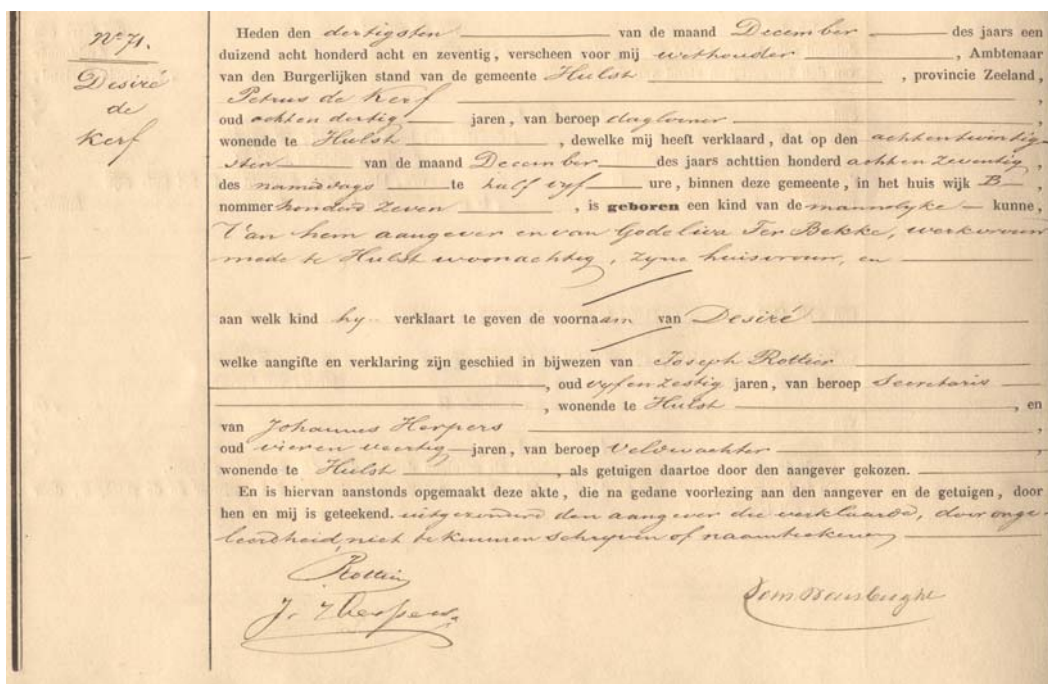 No 71.
Desiré
de
Kerf
Heden den dertigsten van de maand December des jaars een
duizend acht honderd acht en zeventig, verscheen voor mij wethouder , Ambtenaar
van den Burgerlijken stand van de gemeente Hulst , provincie Zeeland,
Petrus de Kerf ,
oud acht en dertig jaren, van beroep daglooner ,
wonende te Hulst , dewelke mij heeft verklaard, dat op den achtentwintig-
sten van de maand December des jaars achttien honderd acht en zeventig,
des namiddags te half vyf ure, binnen deze gemeente, in het huis wijk B ,
nommer honderd zeven , is geboren een kind van de mannelyke kunne,
Van hem aangever en van Godeliva Ter Bekke, werkvrouw
mede te Hulst woonachtig, zyne huisvrouw, en
aan welk kind hy verklaart te geven de voornaam van Desiré
welke aangifte en verklaring zijn geschied in bijwezen van Joseph Rottier
, oud vyf en zestig jaren, van beroep Secretaris
, wonende te Hulst , en
van Johannes Herpers ,
oud vier en veertig jaren, van beroep veldwachter ,
wonende te Hulst , als getuigen daartoe door den aangever gekozen.
En is hiervan aanstonds opgemaakt deze akte, die na gedane voorlezing aan den aangever en de getuigen, door
hen en mij is geteekend. uitgezonderd den aangever die verklaarde, door onge-
leerdheid niet te kunnen schryven of naamteekenen
Rottier
J. Herpers.